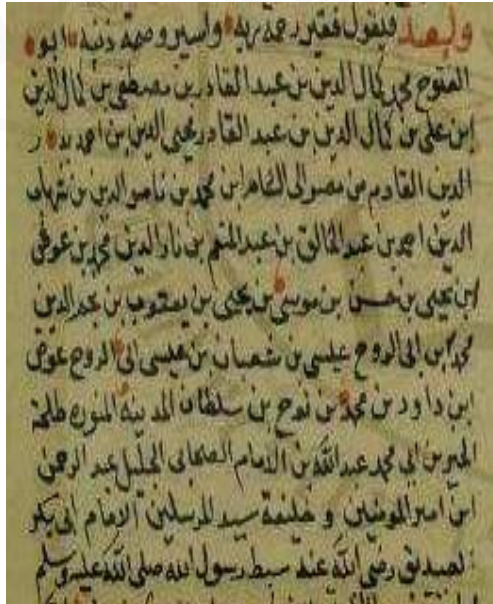 وبعد فيقول فقير رحمة ربه واسير وصمة ذنبه ابو
الفتوح محمد كمال الدين بن عبد القادر بن مصطفى بن كمال الدين
ابن علي بن كمال الدين بن عبد القادر محيى الدين بن احمد بدر
الدين القادم من مصر الى الشام ابن محمد بن ناصر الدين بن شهاب
الدين احمد بن عبد الخالق بن عبد المنعم بن الدين محمد بن عوض
ابن يحيى بن حسن بن موسى بن يحيى بن يعقوب بن نجم الدين
محمد بن ابى الروح عيسى بن شعبان بن عيسى ابى الروح عوض
ابن داود بن محمد بن نوح بن سلطان المدينة المنوره طلحة
الخير بن ابي محمد عبد الله بن الامام الصحابى الجليل عبد الرحمن
ابن امير المومنين و خليفة سيد المرسلين الامام ابى بكر
الصديق رضي الله عنه سبط رسول الله صلى الله عليه وسلم